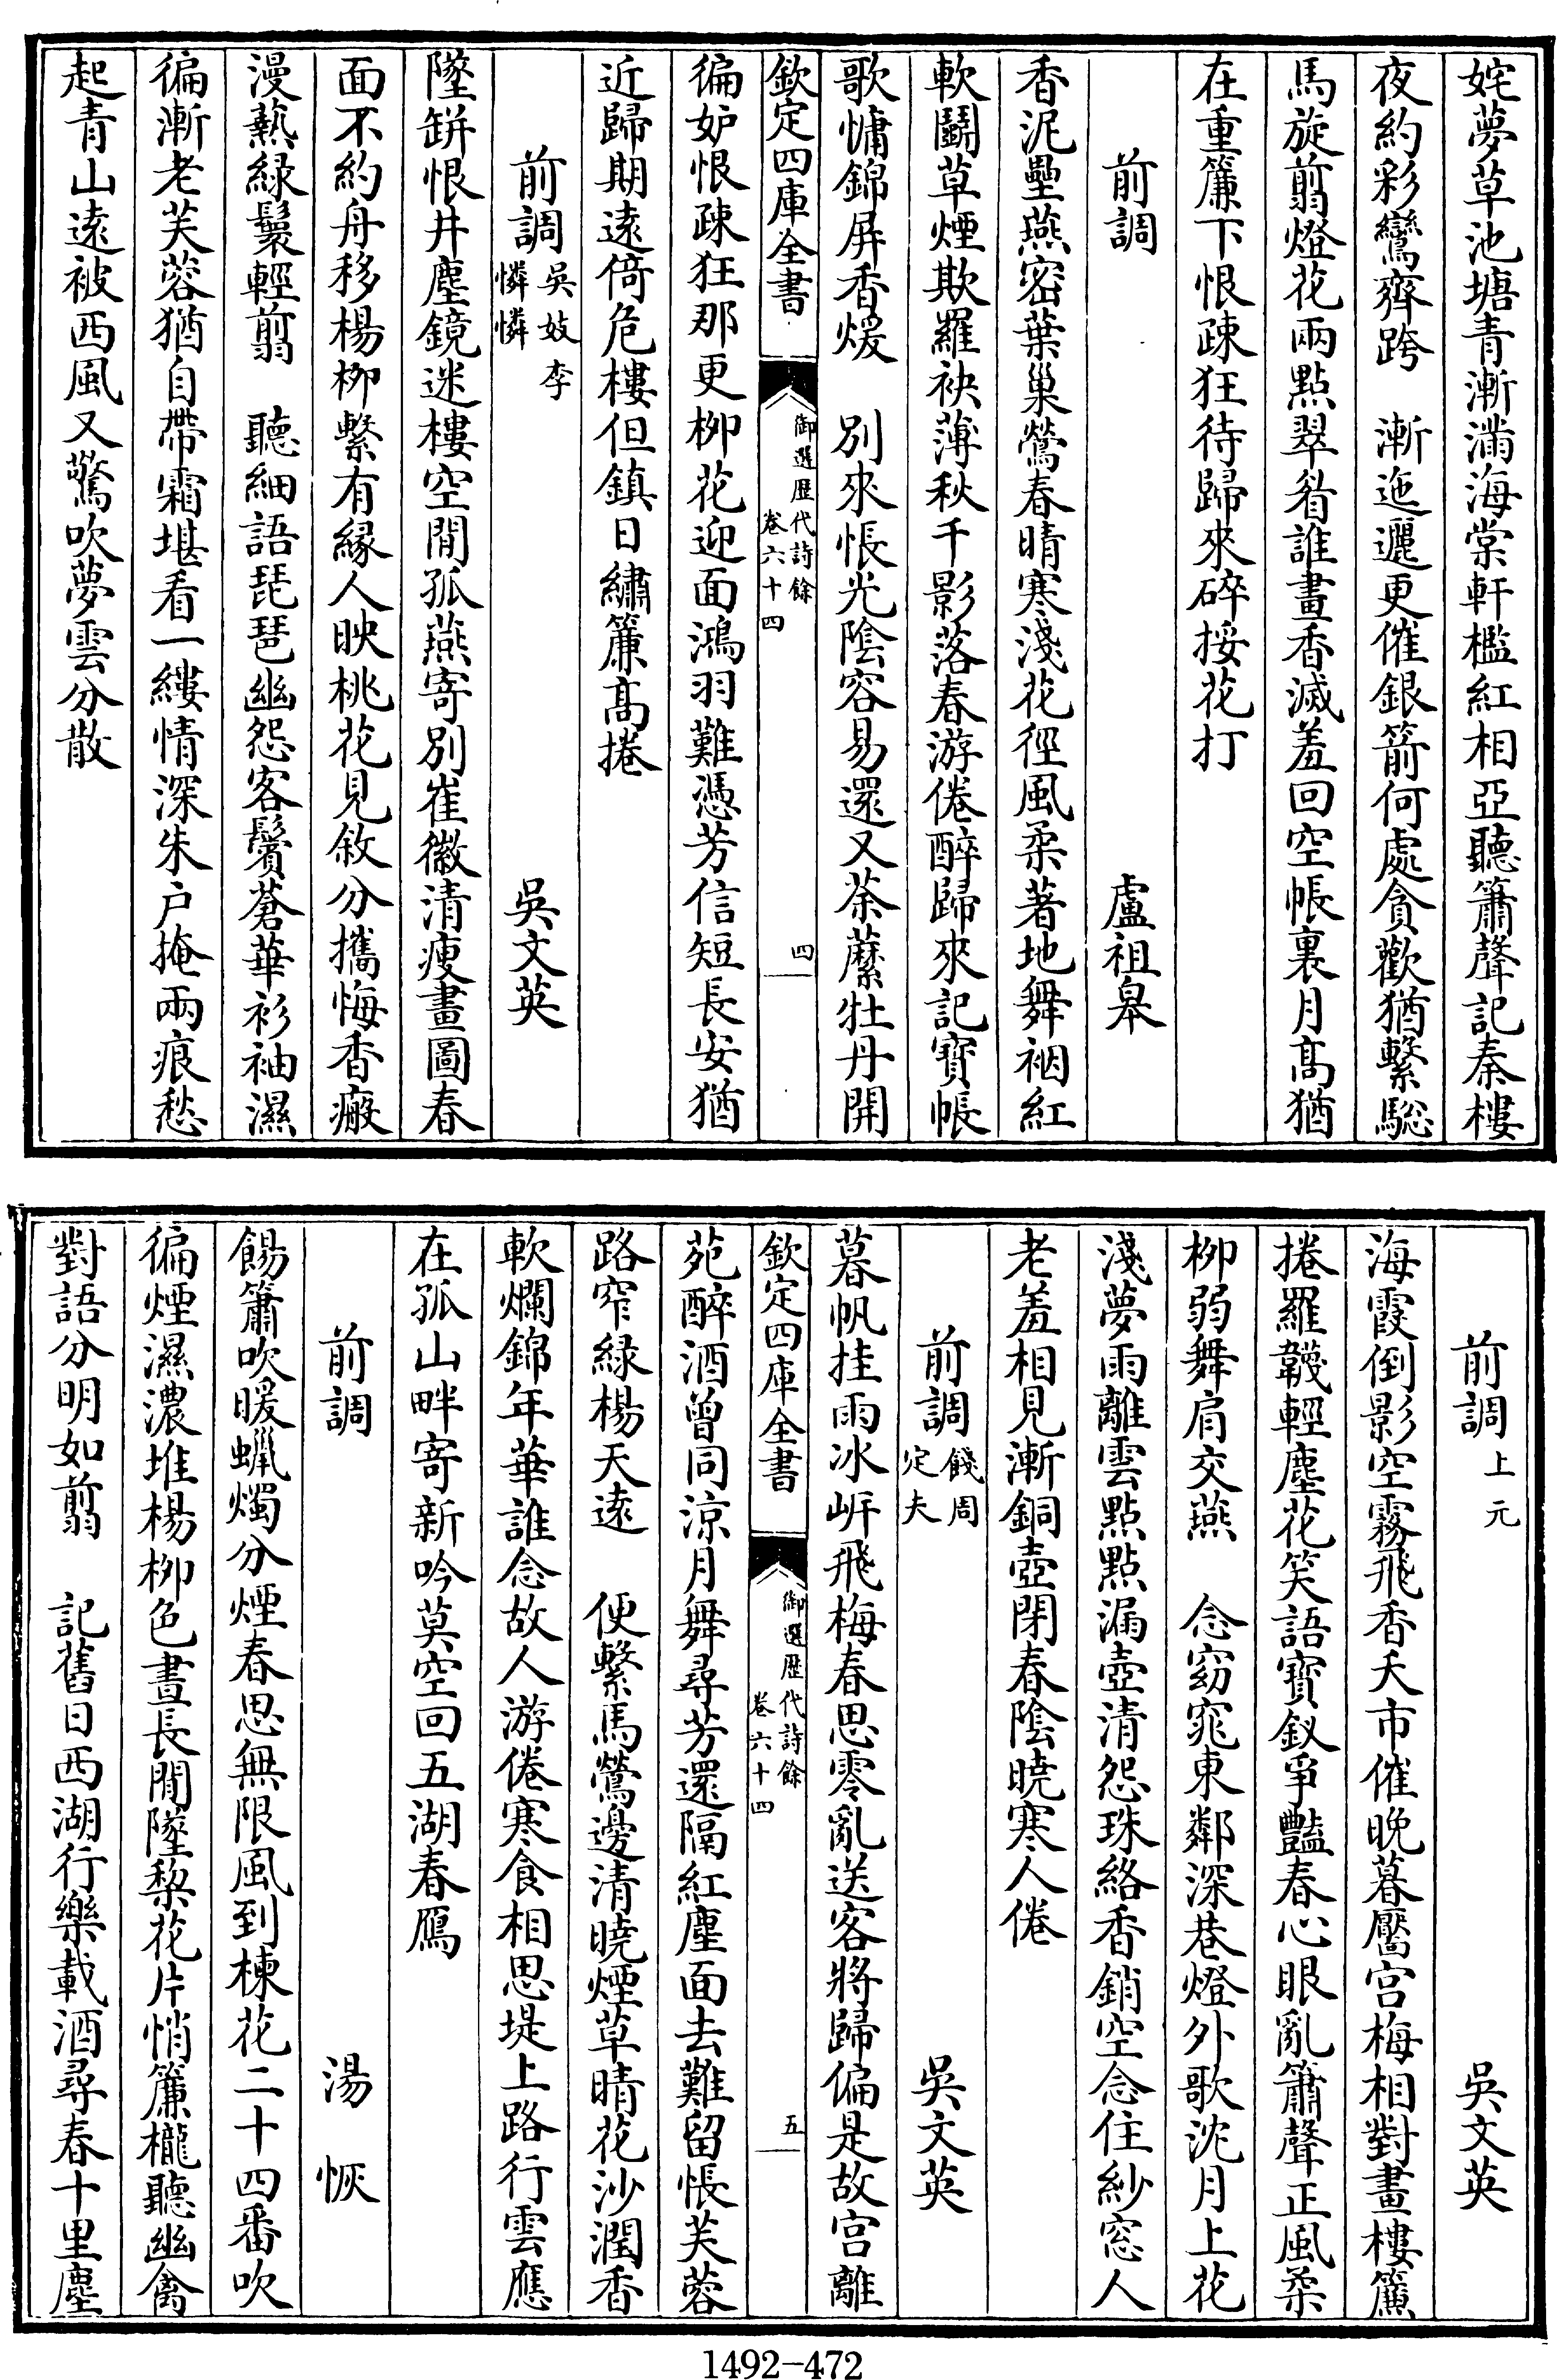 姹夢草池塘青漸滿海棠軒檻紅相亞聽簫聲記秦樓
夜約彩鸞齊跨　漸迤邐更催銀箭何處貪歡猶繫驄
馬旋翦燈花兩點翠眉誰畫香滅羞回空帳裏月髙猶
在重簾下恨疎狂待歸來碎挼花打
前調　盧祖皋
香泥壘燕密葉巢鶯春晴寒淺花徑風柔著地舞裀紅
軟鬬草煙欺羅袂薄秋千影落春游倦醉歸來記寳帳
歌慵錦屏香煖　別來悵光陰容易還又荼蘼牡丹開
欽定四庫全書　御選歴代詩餘　卷六十四　四
徧妒恨疎狂那更栁花迎面鴻羽難憑芳信短長安猶
近歸期遠倚危樓但鎮日繡簾髙捲
前調吳妓李憐憐　吳文英
墜缾恨井塵鏡迷樓空閒孤燕寄別崔徽清瘦畫圖春
面不約舟移楊栁繫有緣人映桃花見敘分攜悔香瘢
漫爇緑鬟輕翦　聽細語琵琶幽怨客鬢蒼華衫袖濕
徧漸老芙蓉猶自帶霜堪看一縷情深朱户掩兩痕愁
起青山遠被西風又驚吹夢雲分散
前調上元　吳文英
海霞倒影空霧飛香天市催晚暮靨宫梅相對畫樓簾
捲羅韈輕塵花笑語寳釵爭豔春心眼亂簫聲正風柔
栁弱舞肩交燕　念窈窕東鄰深巷燈外歌沈月上花
淺夢雨離雲點點漏壺清怨珠絡香銷空念住紗窓人
老羞相見漸銅壺閉春陰曉寒人倦
前調餞周定夫　吳文英
暮帆挂雨冰岍飛梅春思零亂送客將歸偏是故宫離
欽定四庫全書　御選歴代詩餘　卷六十四　五
苑醉酒曾同涼月舞尋芳還隔紅塵面去難留悵芙蓉
路窄緑楊天遠　便繫馬鶯邊清曉煙草晴花沙潤香
軟爛錦年華誰念故人游倦寒食相思堤上路行雲應
在孤山畔寄新吟莫空回五湖春鴈
前調　湯恢
餳簫吹暖蠟燭分煙春思無限風到楝花二十四番吹
徧煙濕濃堆楊栁色晝長閒墜棃花片悄簾櫳聽幽禽
對語分明如翦　記舊日西湖行樂載酒尋春十里塵
1492-472